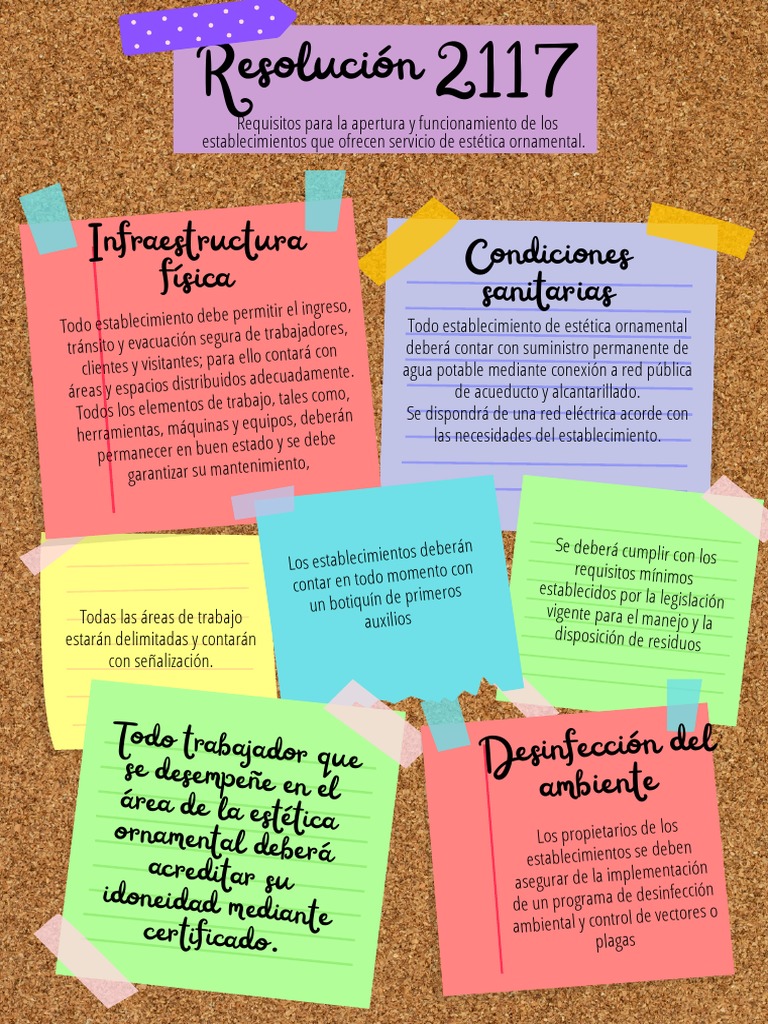 Resolución 2117
Requisitos para la apertura y funcionamiento de los
establecimientos que ofrecen servicio de estética ornamental.
Infraestructura
física
Todo establecimiento debe permitir el ingreso,
tránsito y evacuación segura de trabajadores,
clientes y visitantes; para ello contará con
áreas y espacios distribuidos adecuadamente.
Todos los elementos de trabajo, tales como,
herramientas, máquinas y equipos, deberán
permanecer en buen estado y se debe
garantizar su mantenimiento,
Condiciones
sanitarias
Todo establecimiento de estética ornamental
deberá contar con suministro permanente de
agua potable mediante conexión a red pública
de acueducto y alcantarillado.
Se dispondrá de una red eléctrica acorde con
las necesidades del establecimiento.
Todas las áreas de trabajo
estarán delimitadas y contarán
con señalización.
Los establecimientos deberán
contar en todo momento con
un botiquín de primeros
auxilios
Se deberá cumplir con los
requisitos mínimos
establecidos por la legislación
vigente para el manejo y la
disposición de residuos
Todo trabajador que
se desempeñe en el
área de la estética
ornamental deberá
acreditar su
idoneidad mediante
certificado.
Desinfección del
ambiente
Los propietarios de los
establecimientos se deben
asegurar de la implementación
de un programa de desinfección
ambiental y control de vectores o
plagas